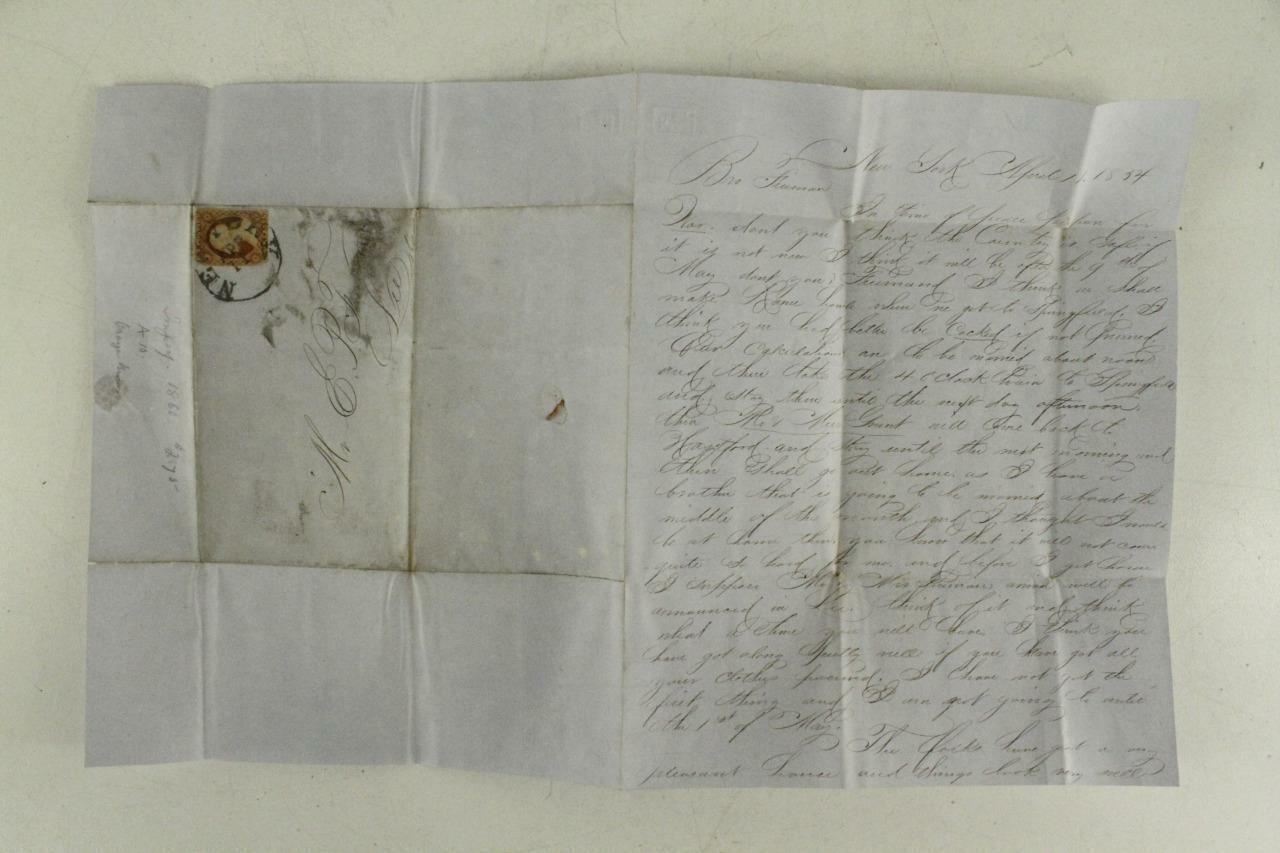 New York April 11. 1854
Bro Freeman
In time of peace prepare for
War. dont you think the Country is safe if
it is not now I think it will be after the 9 day
May dont you, Freeman I think we shall
make Some when we get to Springfield. I
think you had better be Cocked if not Primed.
Our Calculations are to be married about noon
and then take the 4 OClock train to Springfield
and stay there until the next day afternoon.
then Mr & Mrs Grant will Come back to
Hartford and stay until the next morning and
then shall go home as I have a
brother that is going to be married about the
middle of the month and I thought I would
be at home then you know that it will not come
quite so hard for me. and before I get home
I suppose Mr & Mrs Freeman will be
announced in Lee think of it and think
what a time you will have. I think you
have got along well if you have got all
your Clothes procured. I have not got the
first thing and I am not going to until
the 1st of May.
The folks have got a very
pleasant house and things look very well
NEW
Mr E. P.
Lee
1861
A10